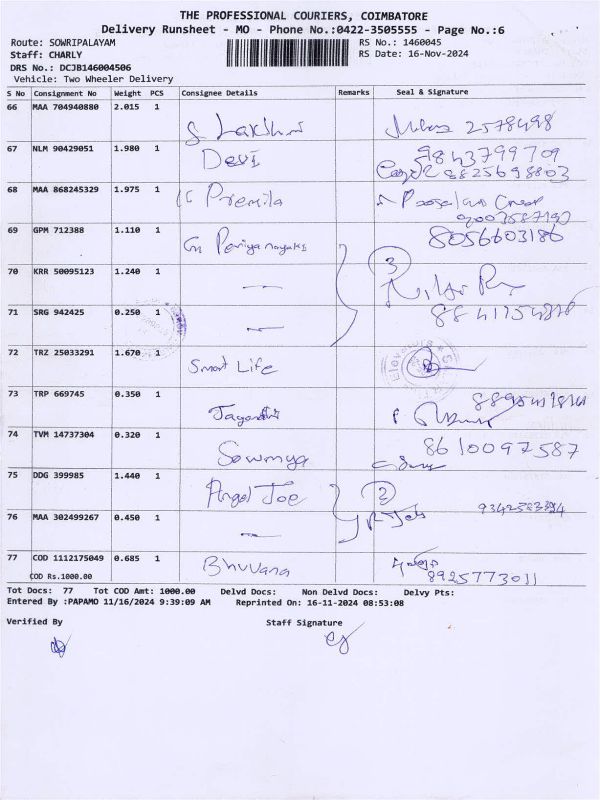 THE PROFESSIONAL COURIERS, COIMBATORE
Delivery Runsheet - MO - Phone No.:0422-3505555 - Page No.:6
Route: SOWRIPALAYAM RS No.: 1460045
Staff: CHARLY RS Date: 16-Nov-2024
DRS No.: DCJB146004506
Vehicle: Two Wheeler Delivery
S No Consignment No Weight PCS Consignee Details Remarks Seal & Signature
66 MAA 704940880 2.015 1
S Lakshmi 2578498
67 NLM 90429051 1.980 1 Devi 9843799709
9825698803
68 MAA 868245329 1.975 1 Premila
69 GPM 712388 1.110 1 Periyanayaki 8056603186
70 KRR 50095123 1.240 1 — 3
71 SRG 942425 0.250 1 —
72 TRZ 25033291 1.670 1
Smart Life
73 TRP 669745 0.350 1
74 TVM 14737304 0.320 1 Sowmya 8610097587
75 DDG 399985 1.440 1 Angel Joe 2
76 MAA 302499267 0.450 1 —
77 COD 1112175049 0.685 1 Bhuvana
COD Rs.1000.00 8925773011
Tot Docs: 77 Tot COD Amt: 1000.00 Delvd Docs: Non Delvd Docs: Delvy Pts:
Entered By :PAPAMO 11/16/2024 9:39:09 AM Reprinted On: 16-11-2024 08:53:08
Verified By Staff Signature